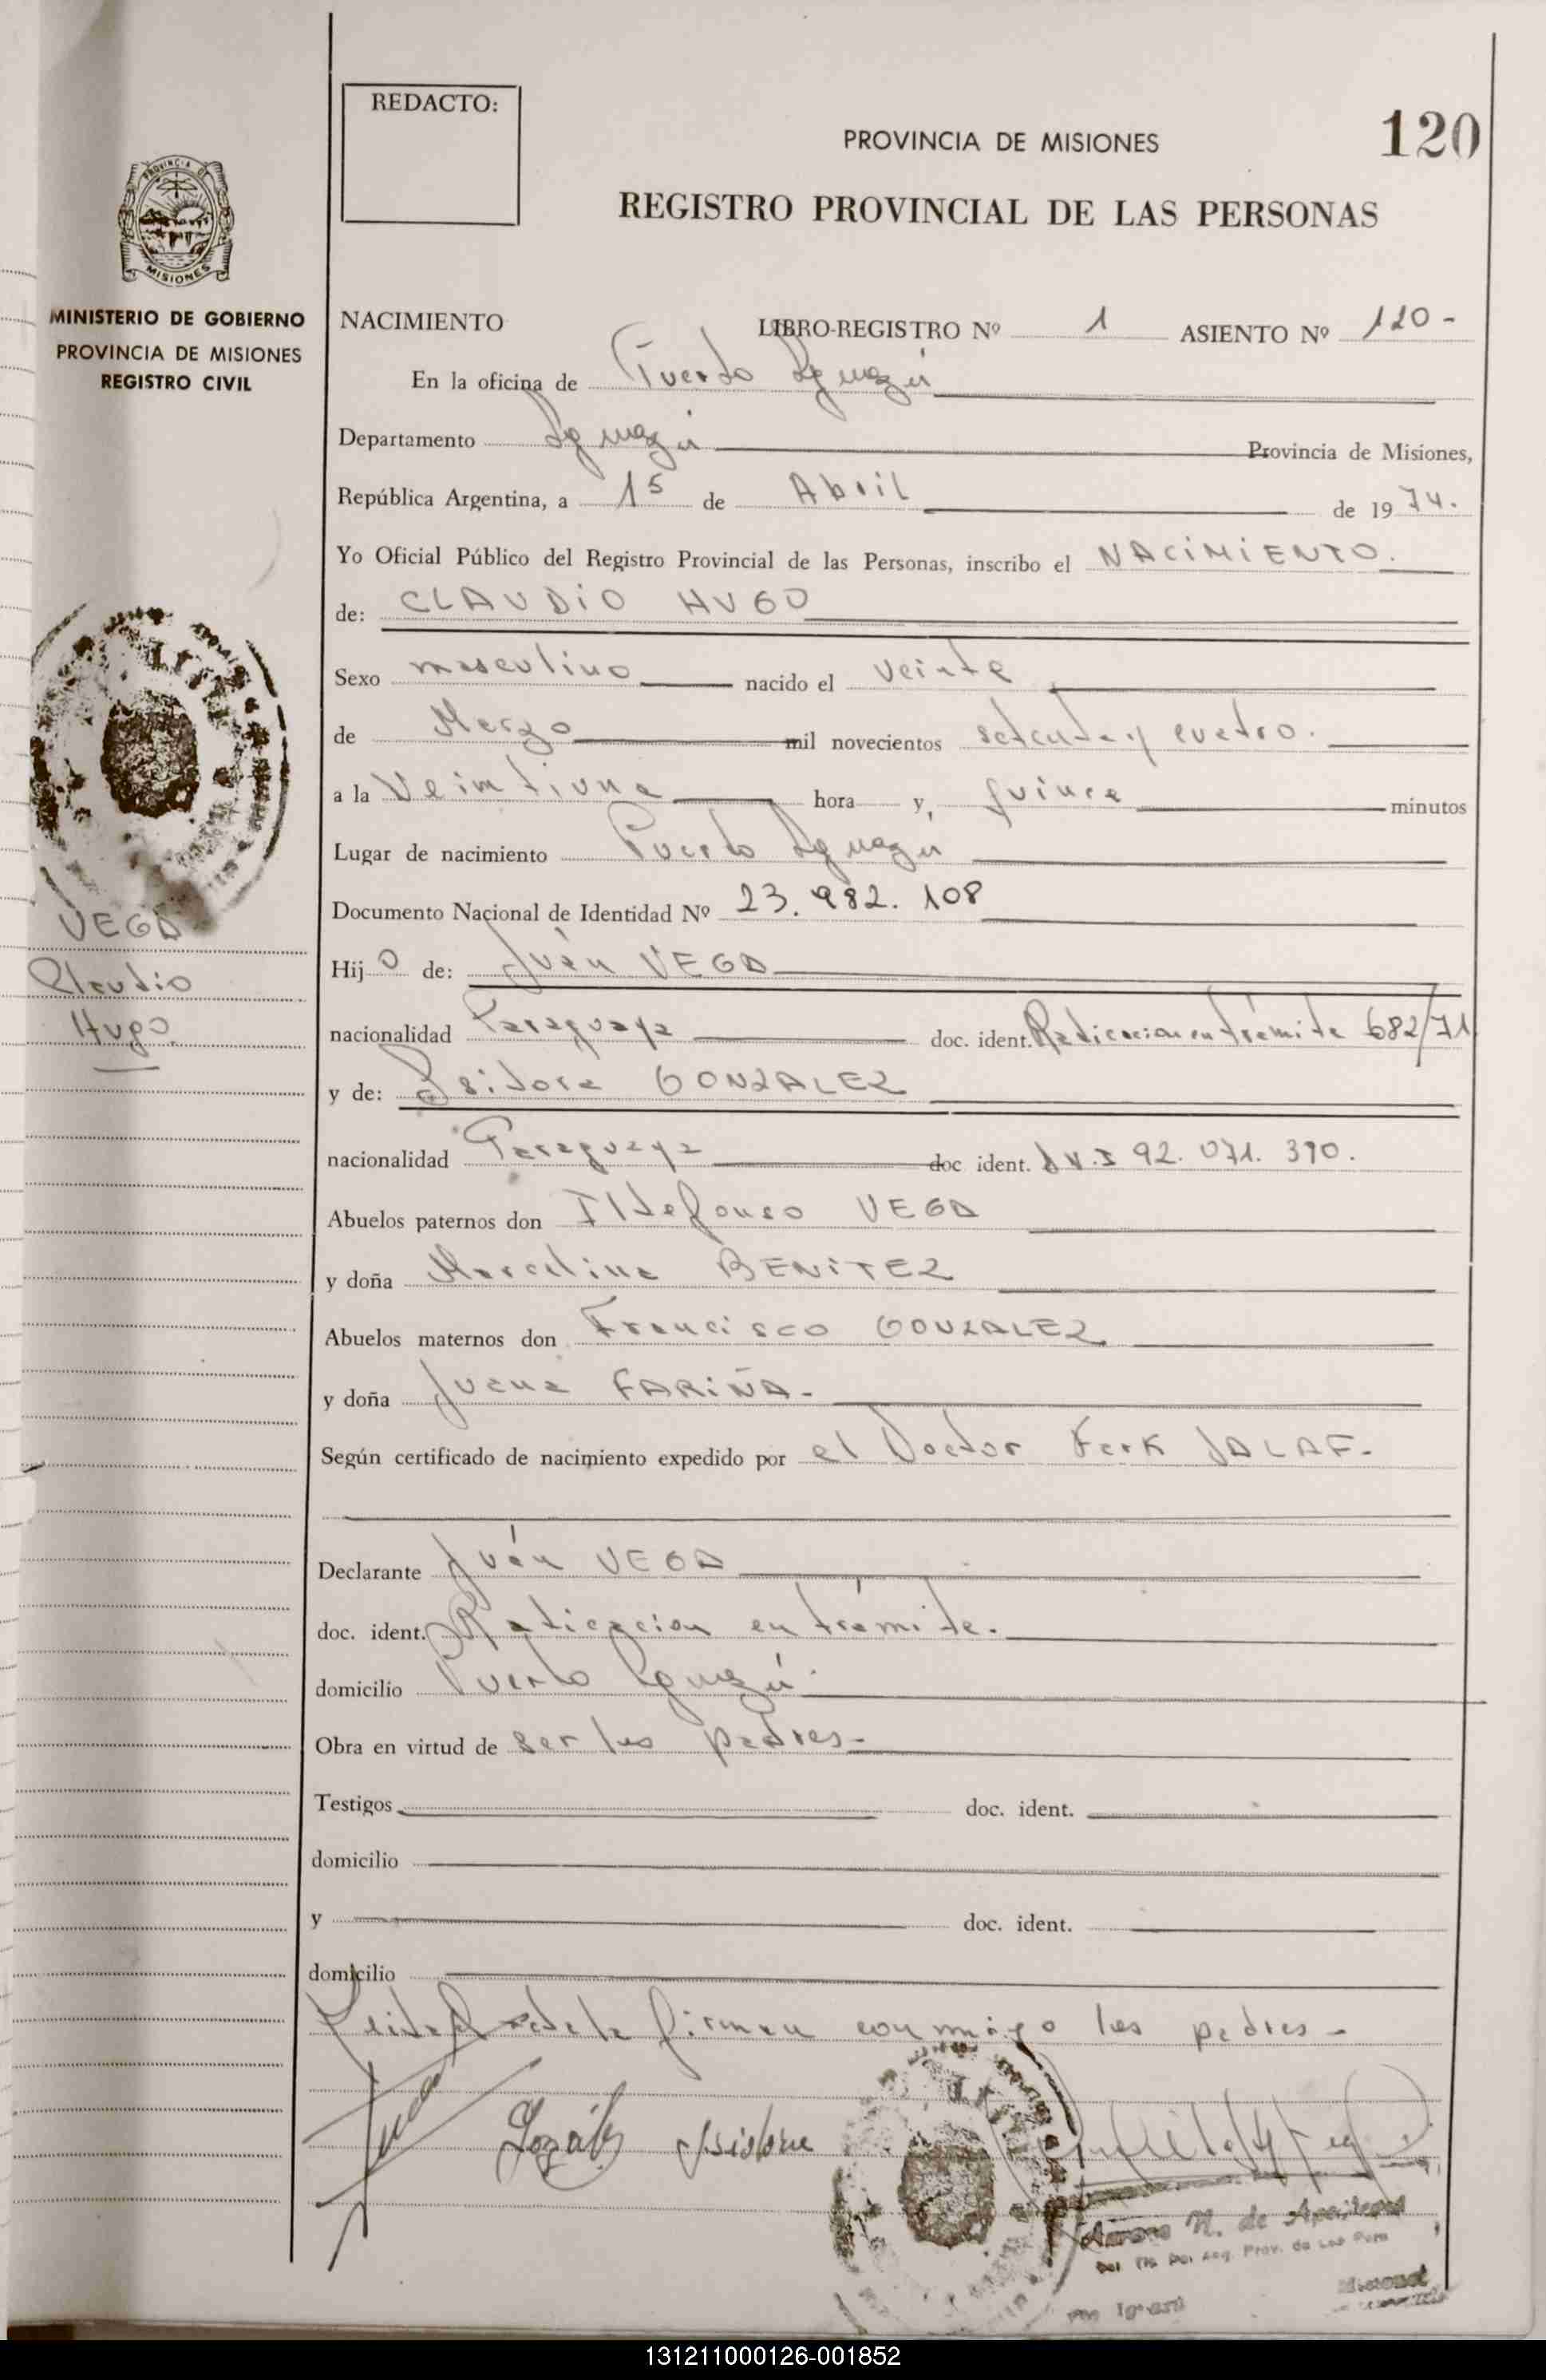 REDACTO:
120
PROVINCIA DE MISIONES
REGISTRO PROVINCIAL DE LAS PERSONAS
PROVINCIA DE
MISIONES
MINISTERIO DE GOBIERNO
PROVINCIA DE MISIONES
REGISTRO CIVIL
VEGA
Claudio
Hugo
NACIMIENTO LIBRO-REGISTRO Nº 1 ASIENTO Nº 120-
En la oficina de Puerto Iguazú
Departamento Iguazú Provincia de Misiones,
República Argentina, a 15 de Abril de 1974.
Yo Oficial Público del Registro Provincial de las Personas, inscribo el NACIMIENTO.
de: CLAUDIO HUGO
Sexo masculino nacido el veinte
de Marzo mil novecientos setenta y cuatro.
a la Veintiuna hora y, quince minutos
Lugar de nacimiento Puerto Iguazú
Documento Nacional de Identidad Nº 23.982.108
Hijo de: Juán VEGA
nacionalidad Paraguaya doc. ident. Radicacion en trámite 682/71
y de: Isidora GONZALEZ
nacionalidad Paraguaya doc ident. D N.I 92.071.390.
Abuelos paternos don Ildefonso VEGA
y doña Marcelina BENITEZ
Abuelos maternos don Francisco GONZALEZ
y doña Juana FARIÑA-
Según certificado de nacimiento expedido por el Doctor Ferk JALAF-
Declarante Juán VEGA
doc. ident. Radicacion en trámite.
domicilio Puerto Iguazú.
Obra en virtud de ser los padres-
Testigos doc. ident.
domicilio
y doc. ident.
domicilio
Leida el acta la firman conmigo los padres-
Isidora
131211000126-001852